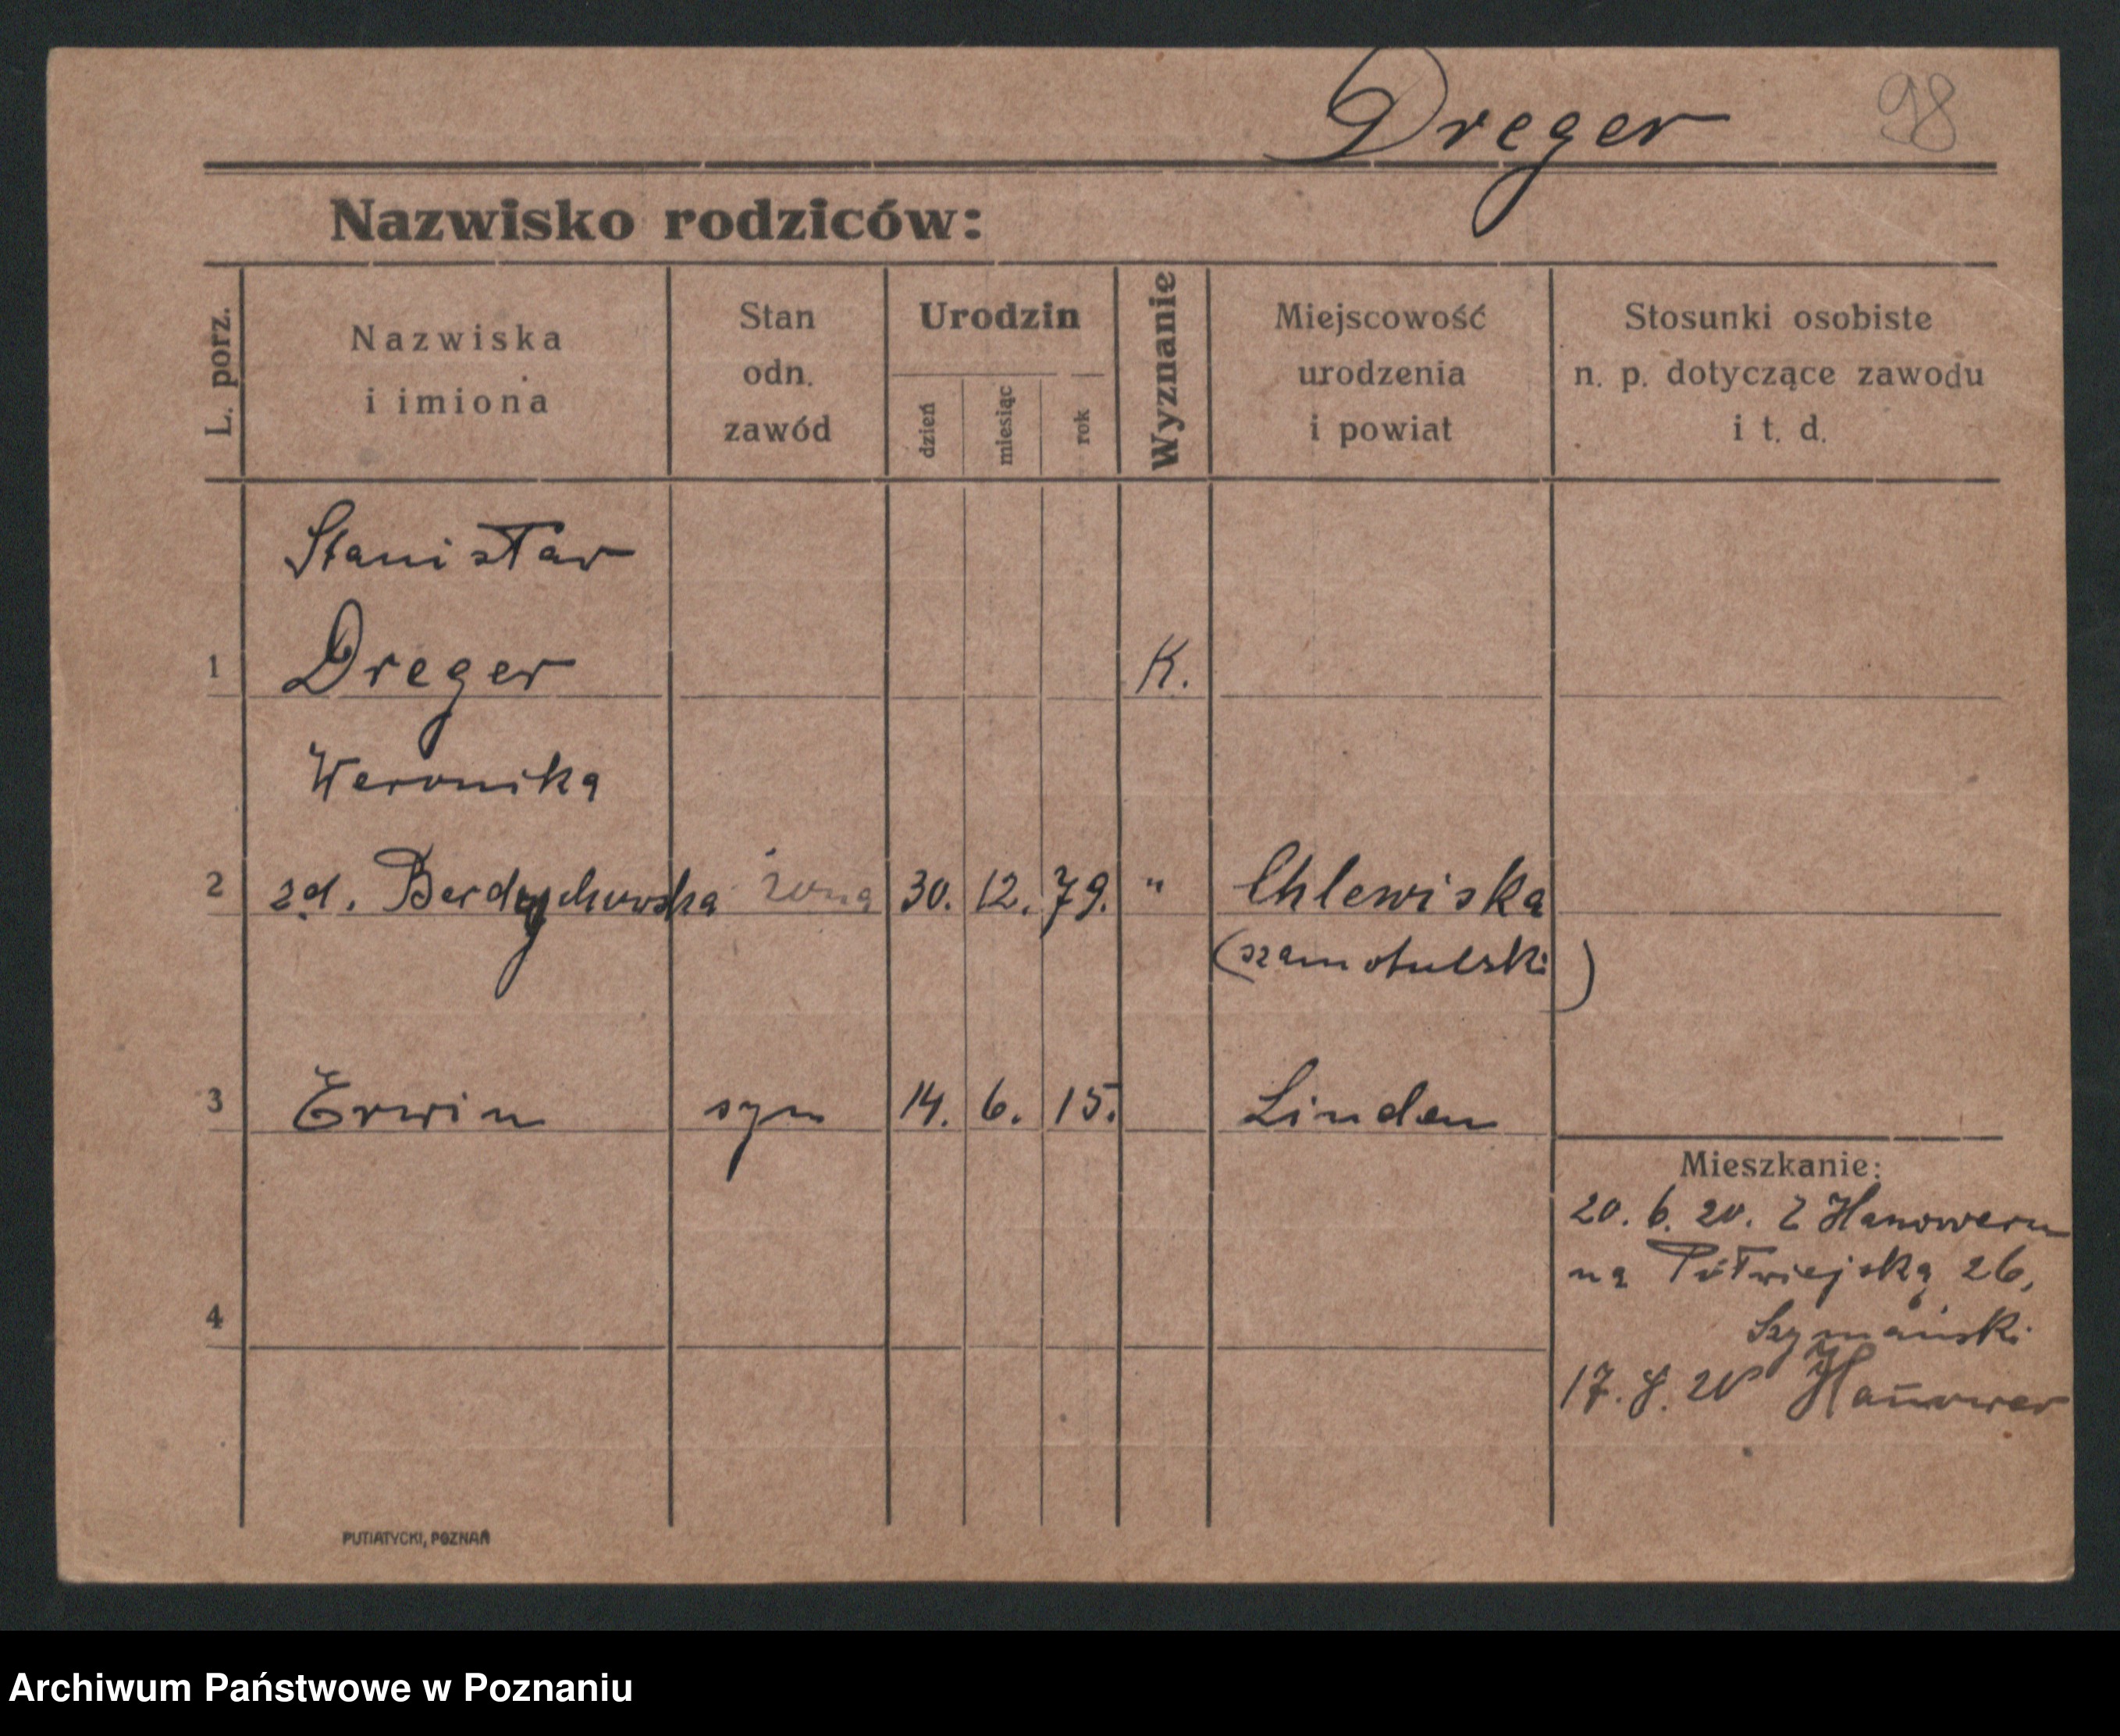 Dreger
98
Nazwisko rodziców:
L. porz.
Nazwiska
i imiona
Stan
odn.
zawód
Urodzin
dzień
miesiąc
rok
Wyznanie
Miejscowość
urodzenia
i powiat
Stosunki osobiste
n. p. dotyczące zawodu
i t. d.
Stanisław
1 Dreger K.
Weronika
2 zd. Berdychowska żona 30. 12. 79. " Chlewiska
(szamotulski)
3 Erwin syn 14. 6. 15. Linden
Mieszkanie:
20. 6. 20. Z Hanoweru
na Półwiejską 26,
4
Szymański
17. 8. 20 Hanower
PUTIATYCKI, POZNAŃ
Archiwum Państwowe w Poznaniu